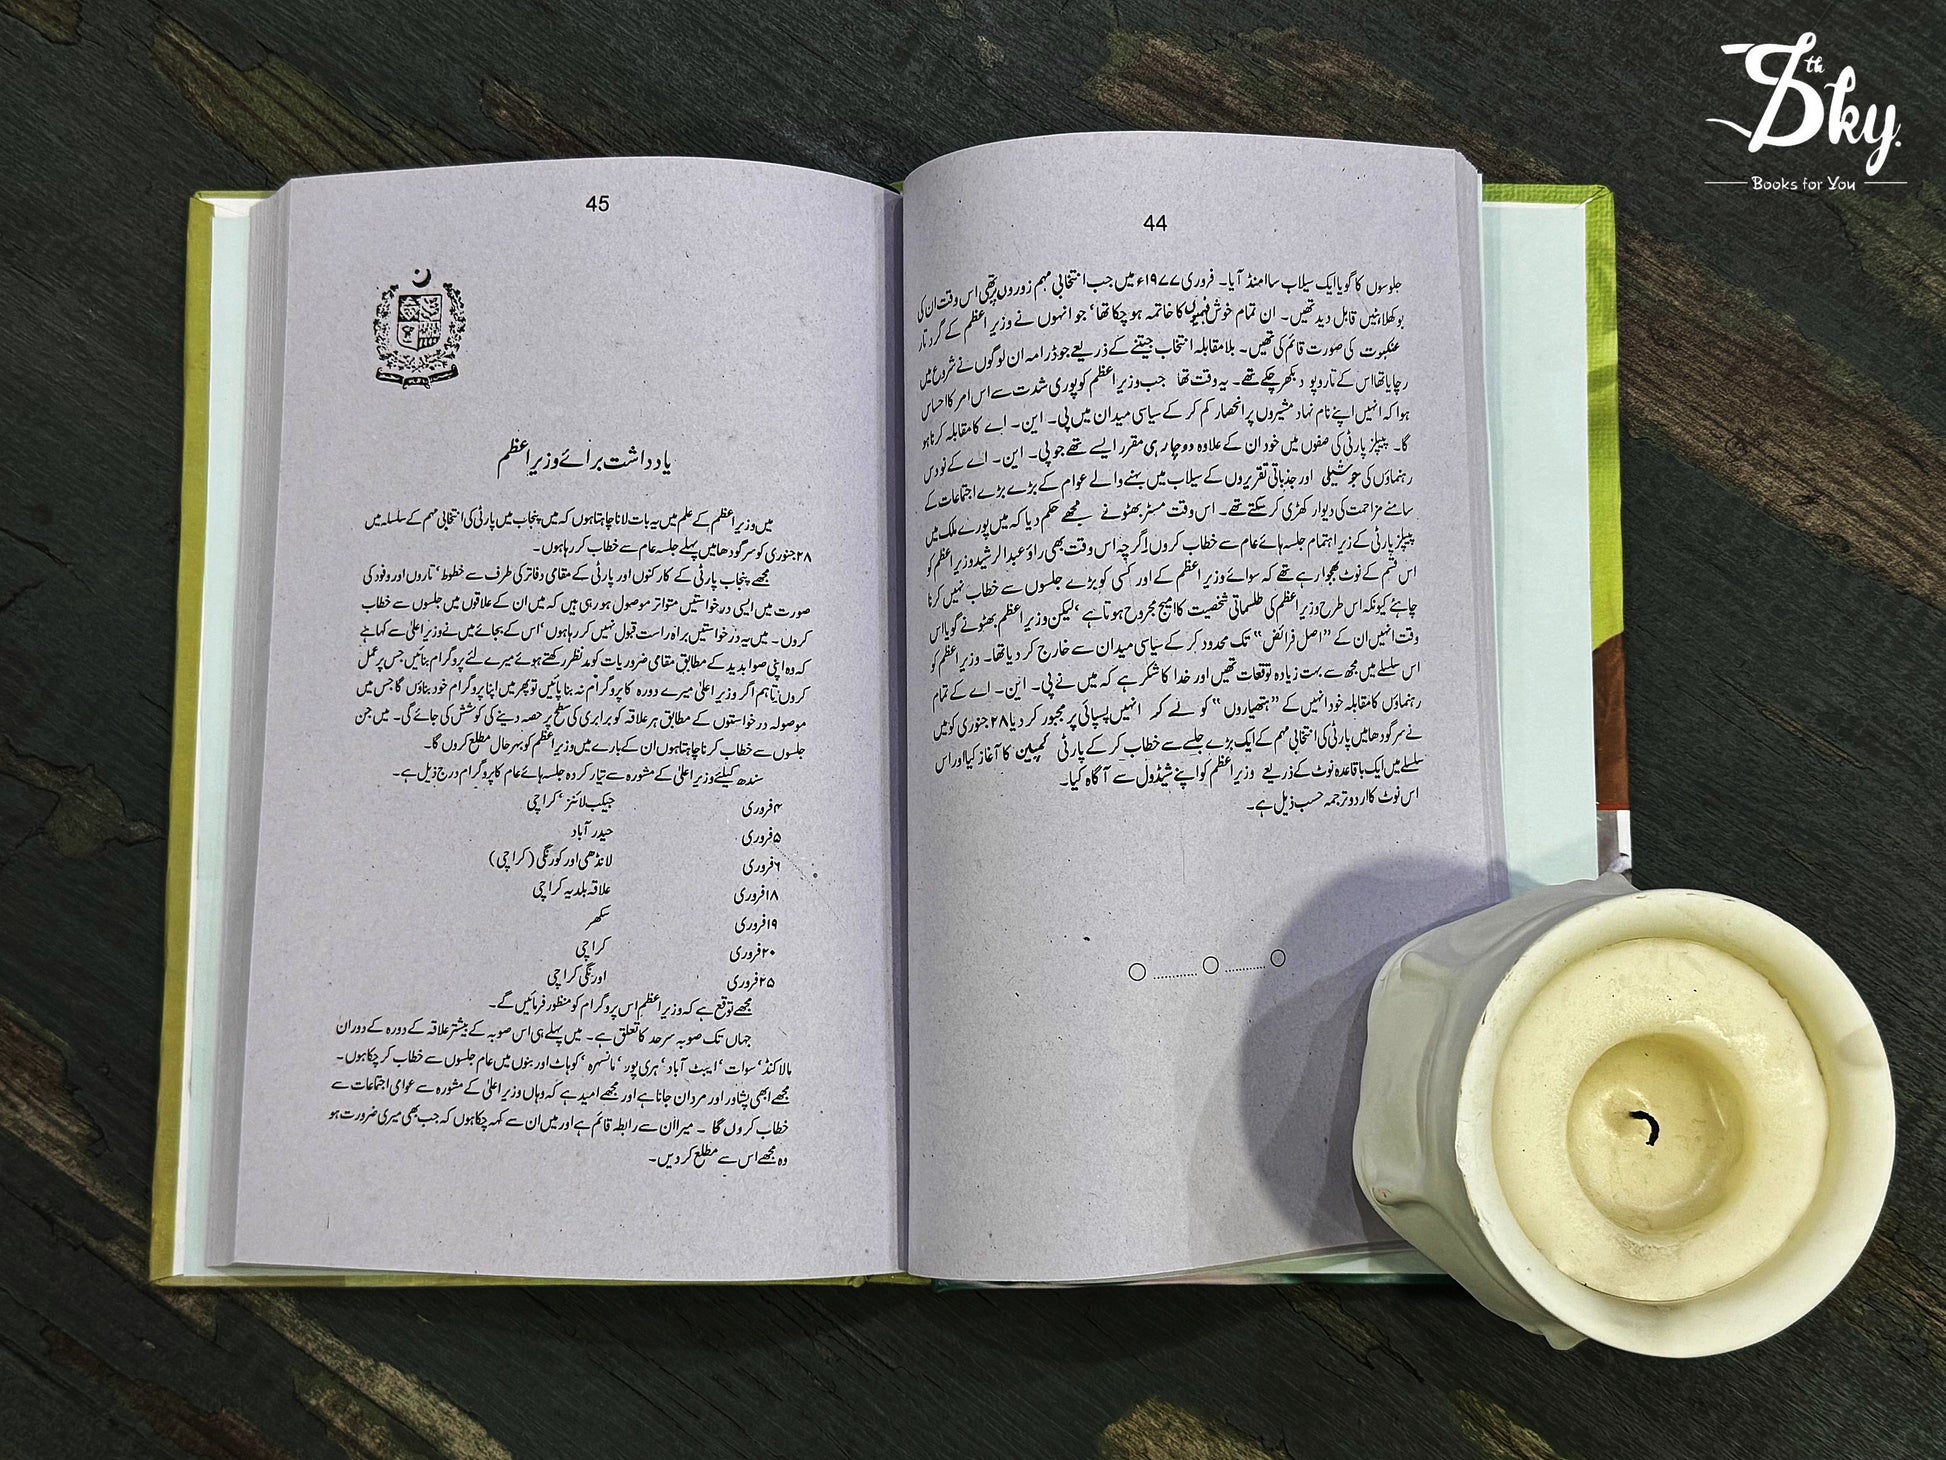 44
جلوسوں کا گویا ایک سیلاب سا امنڈ آیا۔ فروری ۱۹۷۷ء میں جب انتخابی مہم زوروں پر تھی اس وقت ان کی
بوکھلاہٹیں قابل دید تھیں۔ ان تمام خوش فہمیوں کا خاتمہ ہو چکا تھا‘ جو انہوں نے وزیر اعظم کے گرد تار
عنکبوت کی صورت قائم کی تھیں۔ بلا مقابلہ انتخاب جیتنے کے ذریعے جو ڈرامہ ان لوگوں نے شروع میں
رچایا تھا اس کے تاروپود بکھر چکے تھے۔ یہ وقت تھا جب وزیر اعظم کو پوری شدت سے اس امر کا احساس
ہوا کہ انہیں اپنے نام نہاد مشیروں پر انحصار کم کر کے سیاسی میدان میں پی۔ این۔ اے کا مقابلہ کرنا ہو
گا۔ پیپلز پارٹی کی صفوں میں خود ان کے علاوہ دو چار ہی مقرر ایسے تھے جو پی۔ این۔ اے کے نو دس
رہنماؤں کی جوشیلی اور جذباتی تقریروں کے سیلاب میں بہنے والے عوام کے بڑے بڑے اجتماعات کے
سامنے مزاحمت کی دیوار کھڑی کر سکتے تھے۔ اس وقت مسٹر بھٹو نے مجھے حکم دیا کہ میں پورے ملک میں
پیپلز پارٹی کے زیر اہتمام جلسہ ہائے عام سے خطاب کروں اگرچہ اس وقت بھی راؤ عبدالرشید وزیر اعظم کو
اس قسم کے نوٹ بھجوا رہے تھے کہ سوائے وزیر اعظم کے اور کسی کو بڑے جلسوں سے خطاب نہیں کرنا
چاہئے کیونکہ اس طرح وزیر اعظم کی طلسماتی شخصیت کا امیج مجروح ہوتا ہے‘ لیکن وزیر اعظم بھٹو نے گویا اس
وقت انہیں ان کے ”اصل فرائض“ تک محدود کر کے سیاسی میدان سے خارج کر دیا تھا۔ وزیر اعظم کو
اس سلسلے میں مجھ سے بہت زیادہ توقعات تھیں اور خدا کا شکر ہے کہ میں نے پی۔ این۔ اے کے تمام
رہنماؤں کا مقابلہ خود انہیں کے ”ہتھیاروں“ کو لے کر انہیں پسپائی پر مجبور کر دیا ۲۸ جنوری کو میں
نے سرگودھا میں پارٹی کی انتخابی مہم کے ایک بڑے جلسے سے خطاب کر کے پارٹی کمپین کا آغاز کیا اور اس
سلسلے میں ایک باقاعدہ نوٹ کے ذریعے وزیر اعظم کو اپنے شیڈول سے آگاہ کیا۔
اس نوٹ کا اردو ترجمہ حسب ذیل ہے۔
45
یادداشت برائے وزیر اعظم
میں وزیر اعظم کے علم میں یہ بات لانا چاہتا ہوں کہ میں پنجاب میں پارٹی کی انتخابی مہم کے سلسلہ میں
۲۸ جنوری کو سرگودھا میں پہلے جلسہ عام سے خطاب کر رہا ہوں۔
مجھے پنجاب پارٹی کے کارکنوں اور پارٹی کے مقامی دفاتر کی طرف سے خطوط‘ تاروں اور وفود کی
صورت میں ایسی درخواستیں متواتر موصول ہو رہی ہیں کہ میں ان کے علاقوں میں جلسوں سے خطاب
کروں۔ میں یہ درخواستیں براہ راست قبول نہیں کر رہا ہوں‘ اس کے بجائے میں نے وزیر اعلیٰ سے کہا ہے
کہ وہ اپنی صوابدید کے مطابق مقامی ضروریات کو مدنظر رکھتے ہوئے میرے لئے پروگرام بنائیں جس پر عمل
کروں تاہم اگر وزیر اعلیٰ میرے دورہ کا پروگرام نہ بنا پائیں تو پھر میں اپنا پروگرام خود بناؤں گا جس میں
موصولہ درخواستوں کے مطابق ہر علاقہ کو برابری کی سطح پر حصہ دینے کی کوشش کی جائے گی۔ میں جن
جلسوں سے خطاب کرنا چاہتا ہوں ان کے بارے میں وزیر اعظم کو بہرحال مطلع کروں گا۔
سندھ کیلئے وزیر اعلیٰ کے مشورہ سے تیار کردہ جلسہ ہائے عام کا پروگرام درج ذیل ہے۔
۴ فروری جیکب لائنز‘ کراچی
۵ فروری حیدر آباد
۶ فروری لانڈھی اور کورنگی (کراچی)
۱۸ فروری علاقہ بلدیہ کراچی
۱۹ فروری سکھر
۲۰ فروری کراچی
۲۵ فروری اورنگی کراچی
مجھے توقع ہے کہ وزیر اعظم اس پروگرام کو منظور فرمائیں گے۔
جہاں تک صوبہ سرحد کا تعلق ہے۔ میں پہلے ہی اس صوبہ کے بیشتر علاقہ کے دورہ کے دوران
مالاکنڈ‘ سوات‘ ایبٹ آباد‘ ہری پور‘ مانسہرہ‘ کوہاٹ اور بنوں میں عام جلسوں سے خطاب کر چکا ہوں۔
مجھے ابھی پشاور اور مردان جانا ہے اور مجھے امید ہے کہ وہاں وزیر اعلیٰ کے مشورہ سے عوامی اجتماعات سے
خطاب کروں گا۔ میرا ان سے رابطہ قائم ہے اور میں ان سے کہہ چکا ہوں کہ جب بھی میری ضرورت ہو
وہ مجھے اس سے مطلع کر دیں۔
7th Sky.
Books for You